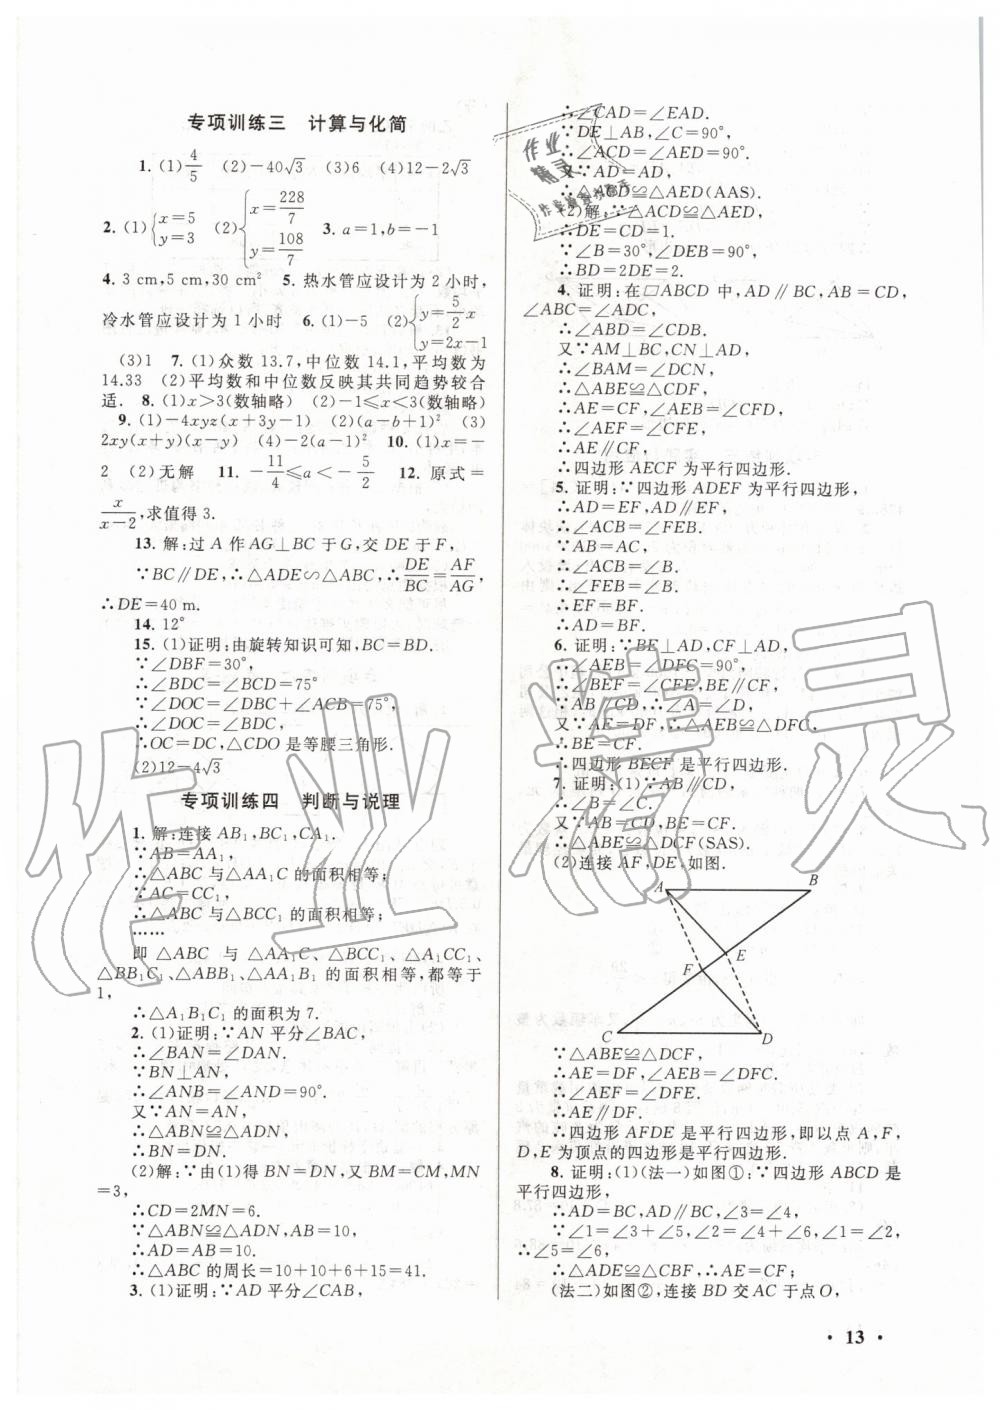 专项训练三 计算与化简
1. (1)4/5 (2)-40√3 (3)6 (4)12-2√3
2. (1){x=5 y=3 (2){x=228/7 y=108/7 3. a=1,b=-1
4. 3 cm,5 cm,30 cm² 5. 热水管应设计为 2 小时,
冷水管应设计为 1 小时 6. (1)-5 (2){y=5/2x y=2x-1
(3)1 7. (1)众数 13.7,中位数 14.1,平均数为
14.33 (2)平均数和中位数反映其共同趋势较合
适. 8. (1)x>3(数轴略) (2)-1≤x<3(数轴略)
9. (1)-4xyz(x+3y-1) (2)(a-b+1)² (3)
2xy(x+y)(x-y) (4)-2(a-1)² 10. (1)x=-
2 (2)无解 11. -11/4≤a<-5/2 12. 原式=
x/(x-2),求值得 3.
13. 解:过 A 作 AG⊥BC 于 G,交 DE 于 F,
∵BC∥DE,∴△ADE∽△ABC,∴DE/BC=AF/AG,
∴DE=40 m.
14. 12°
15. (1)证明:由旋转知识可知,BC=BD.
∵∠DBF=30°,
∴∠BDC=∠BCD=75°
∵∠DOC=∠DBC+∠ACB=75°,
∴∠DOC=∠BDC,
∴OC=DC,△CDO 是等腰三角形.
(2)12-4√3
专项训练四 判断与说理
1. 解:连接 AB₁,BC₁,CA₁.
∵AB=AA₁,
∴△ABC 与△AA₁C 的面积相等;
∵AC=CC₁,
∴△ABC 与△BCC₁ 的面积相等;
……
即 △ABC 与 △AA₁C、△BCC₁、△A₁CC₁、
△BB₁C₁、△ABB₁、△AA₁B₁ 的面积相等,都等于
1,
∴△A₁B₁C₁ 的面积为 7.
2. (1)证明:∵AN 平分∠BAC,
∴∠BAN=∠DAN.
∵BN⊥AN,
∴∠ANB=∠AND=90°
又∵AN=AN,
∴△ABN≌△ADN,
∴BN=DN.
(2)解:∵由(1)得 BN=DN,又 BM=CM,MN
=3,
∴CD=2MN=6.
∵△ABN≌△ADN,AB=10,
∴AD=AB=10.
∴△ABC 的周长=10+10+6+15=41.
3. (1)证明:∵AD 平分∠CAB,
∴∠CAD=∠EAD.
∵DE⊥AB,∠C=90°,
∴∠ACD=∠AED=90°
又∵AD=AD,
∴△ACD≌△AED(AAS).
(2)解:∵△ACD≌△AED,
∴DE=CD=1.
∵∠B=30°,∠DEB=90°,
∴BD=2DE=2.
4. 证明:在▱ABCD 中,AD∥BC,AB=CD,
∠ABC=∠ADC,
∴∠ABD=∠CDB.
又∵AM⊥BC,CN⊥AD,
∴∠BAM=∠DCN,
∴△ABE≌△CDF,
∴AE=CF,∠AEB=∠CFD,
∴∠AEF=∠CFE,
∴AE∥CF,
∴四边形 AECF 为平行四边形.
5. 证明:∵四边形 ADEF 为平行四边形,
∴AD=EF,AD∥EF,
∴∠ACB=∠FEB.
∵AB=AC,
∴∠ACB=∠B.
∴∠FEB=∠B.
∴EF=BF.
∴AD=BF.
6. 证明:∵BE⊥AD,CF⊥AD,
∴∠AEB=∠DFC=90°,
∴∠BEF=∠CFE,BE∥CF,
∵AB∥CD,∴∠A=∠D,
又∵AE=DF,∴△AEB≌△DFC.
∴BE=CF.
∴四边形 BECF 是平行四边形.
7. 证明:(1)∵AB∥CD,
∴∠B=∠C.
又∵AB=CD,BE=CF.
∴△ABE≌△DCF(SAS).
(2)连接 AF,DE,如图.
A B
E
F
C D
∵△ABE≌△DCF,
∴AE=DF,∠AEB=∠DFC.
∴∠AEF=∠DFE.
∴AE∥DF.
∴四边形 AFDE 是平行四边形,即以点 A,F,
D,E 为顶点的四边形是平行四边形.
8. 证明:(1)(法一)如图①:∵四边形 ABCD 是
平行四边形,
∴AD=BC,AD∥BC,∠3=∠4,
∵∠1=∠3+∠5,∠2=∠4+∠6,∠1=∠2,
∴∠5=∠6,
∴△ADE≌△CBF,∴AE=CF;
(法二)如图②,连接 BD 交 AC 于点 O,
• 13 •
作业精灵
作业精灵